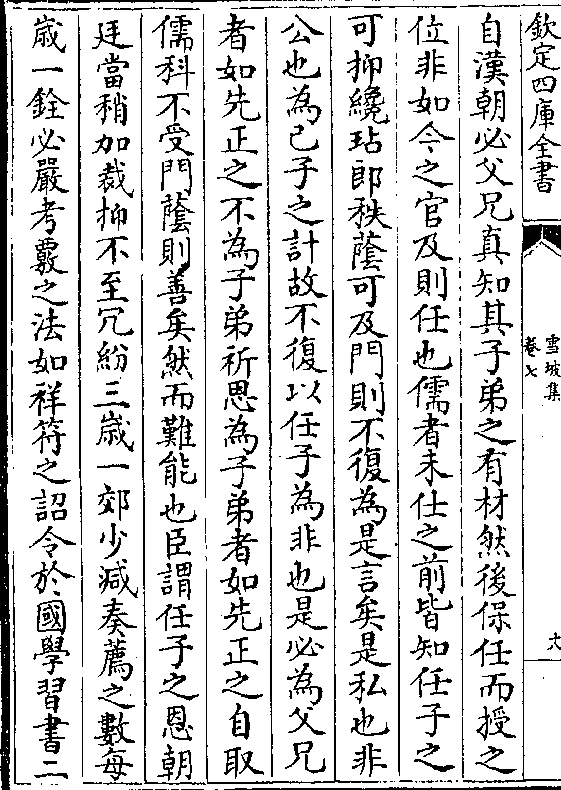 欽定四庫全書
雪坡集
卷七
自漢朝必父兄真知其子弟之有材然後保任而授之
位非如今之官及則任也儒者未仕之前皆知任子之
可抑纔玷郎秩蔭可及門則不復為是言矣是私也非
公也為己子之計故不復以任子為非也是必為父兄
者如先正之不為子弟祈恩為子弟者如先正之自取
儒科不受門蔭則善矣然而難能也臣謂任子之恩朝
廷當稍加裁抑不至冗紛三歲一郊少減奏薦之數每
歲一銓必嚴考覈之法如祥符之詔令於國學習書二